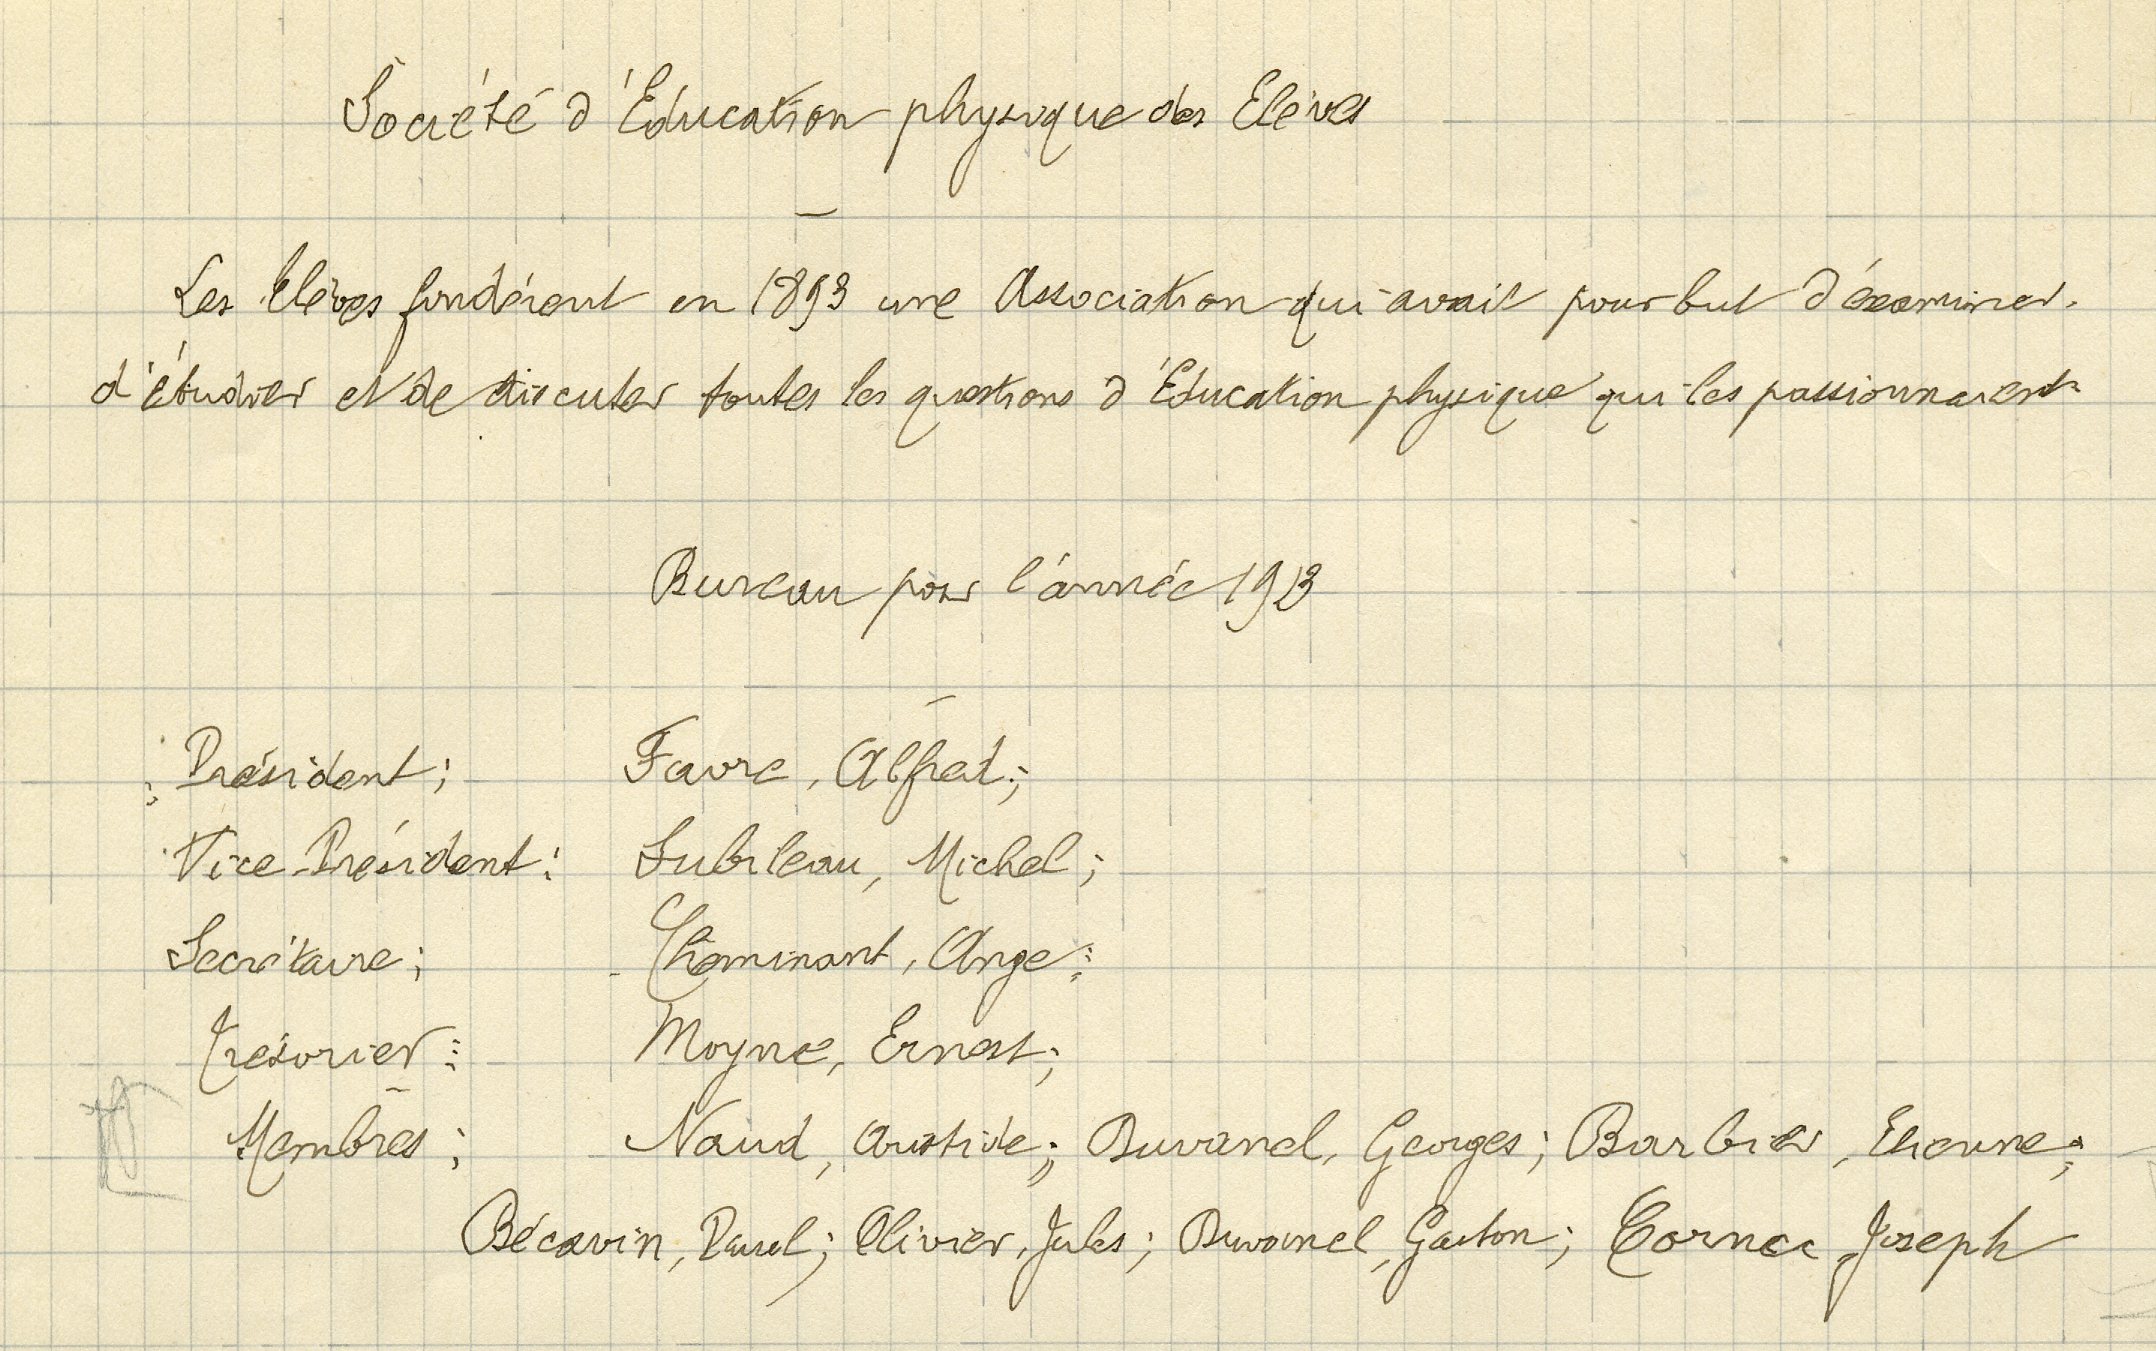 Société d'Education physique des Elèves
Les Elèves fondèrent en 1893 une Association qui avait pour but d'examiner,
d'étudier et de discuter toutes les questions d'Education physique qui les passionnaient
Bureau pour l'année 1913
Président; Favre, Alfred;
Vice-Président: Subileau, Michel;
Secrétaire; Cheminant, Ange;
Trésorier: Moyne, Ernest;
Membres; Naud, Aristide; Duvanel, Georges; Barbier, Etienne;
Bécavin, Paul; Olivier, Jules; Duvanel, Gaston; Cornec Joseph